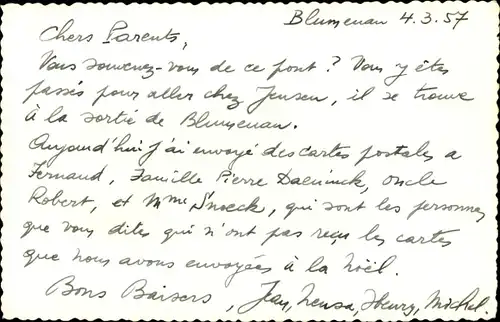 Blumenau 4.3.57
Chers Parents,
Vous souvenez-vous de ce pont ? Vous y êtes
passés pour aller chez Jensen, il se trouve
à la sortie de Blumenau.
Aujourd'hui j'ai envoyé des cartes postales a
Fernand, Famille Pierre Daeninck, oncle
Robert, et Mme Snoeck, qui sont les personnes
que vous dites qui n'ont pas reçu les cartes
que nous avons envoyées à la Noël.
Bons Baisers, Jean, Neusa, Henry, Michel.